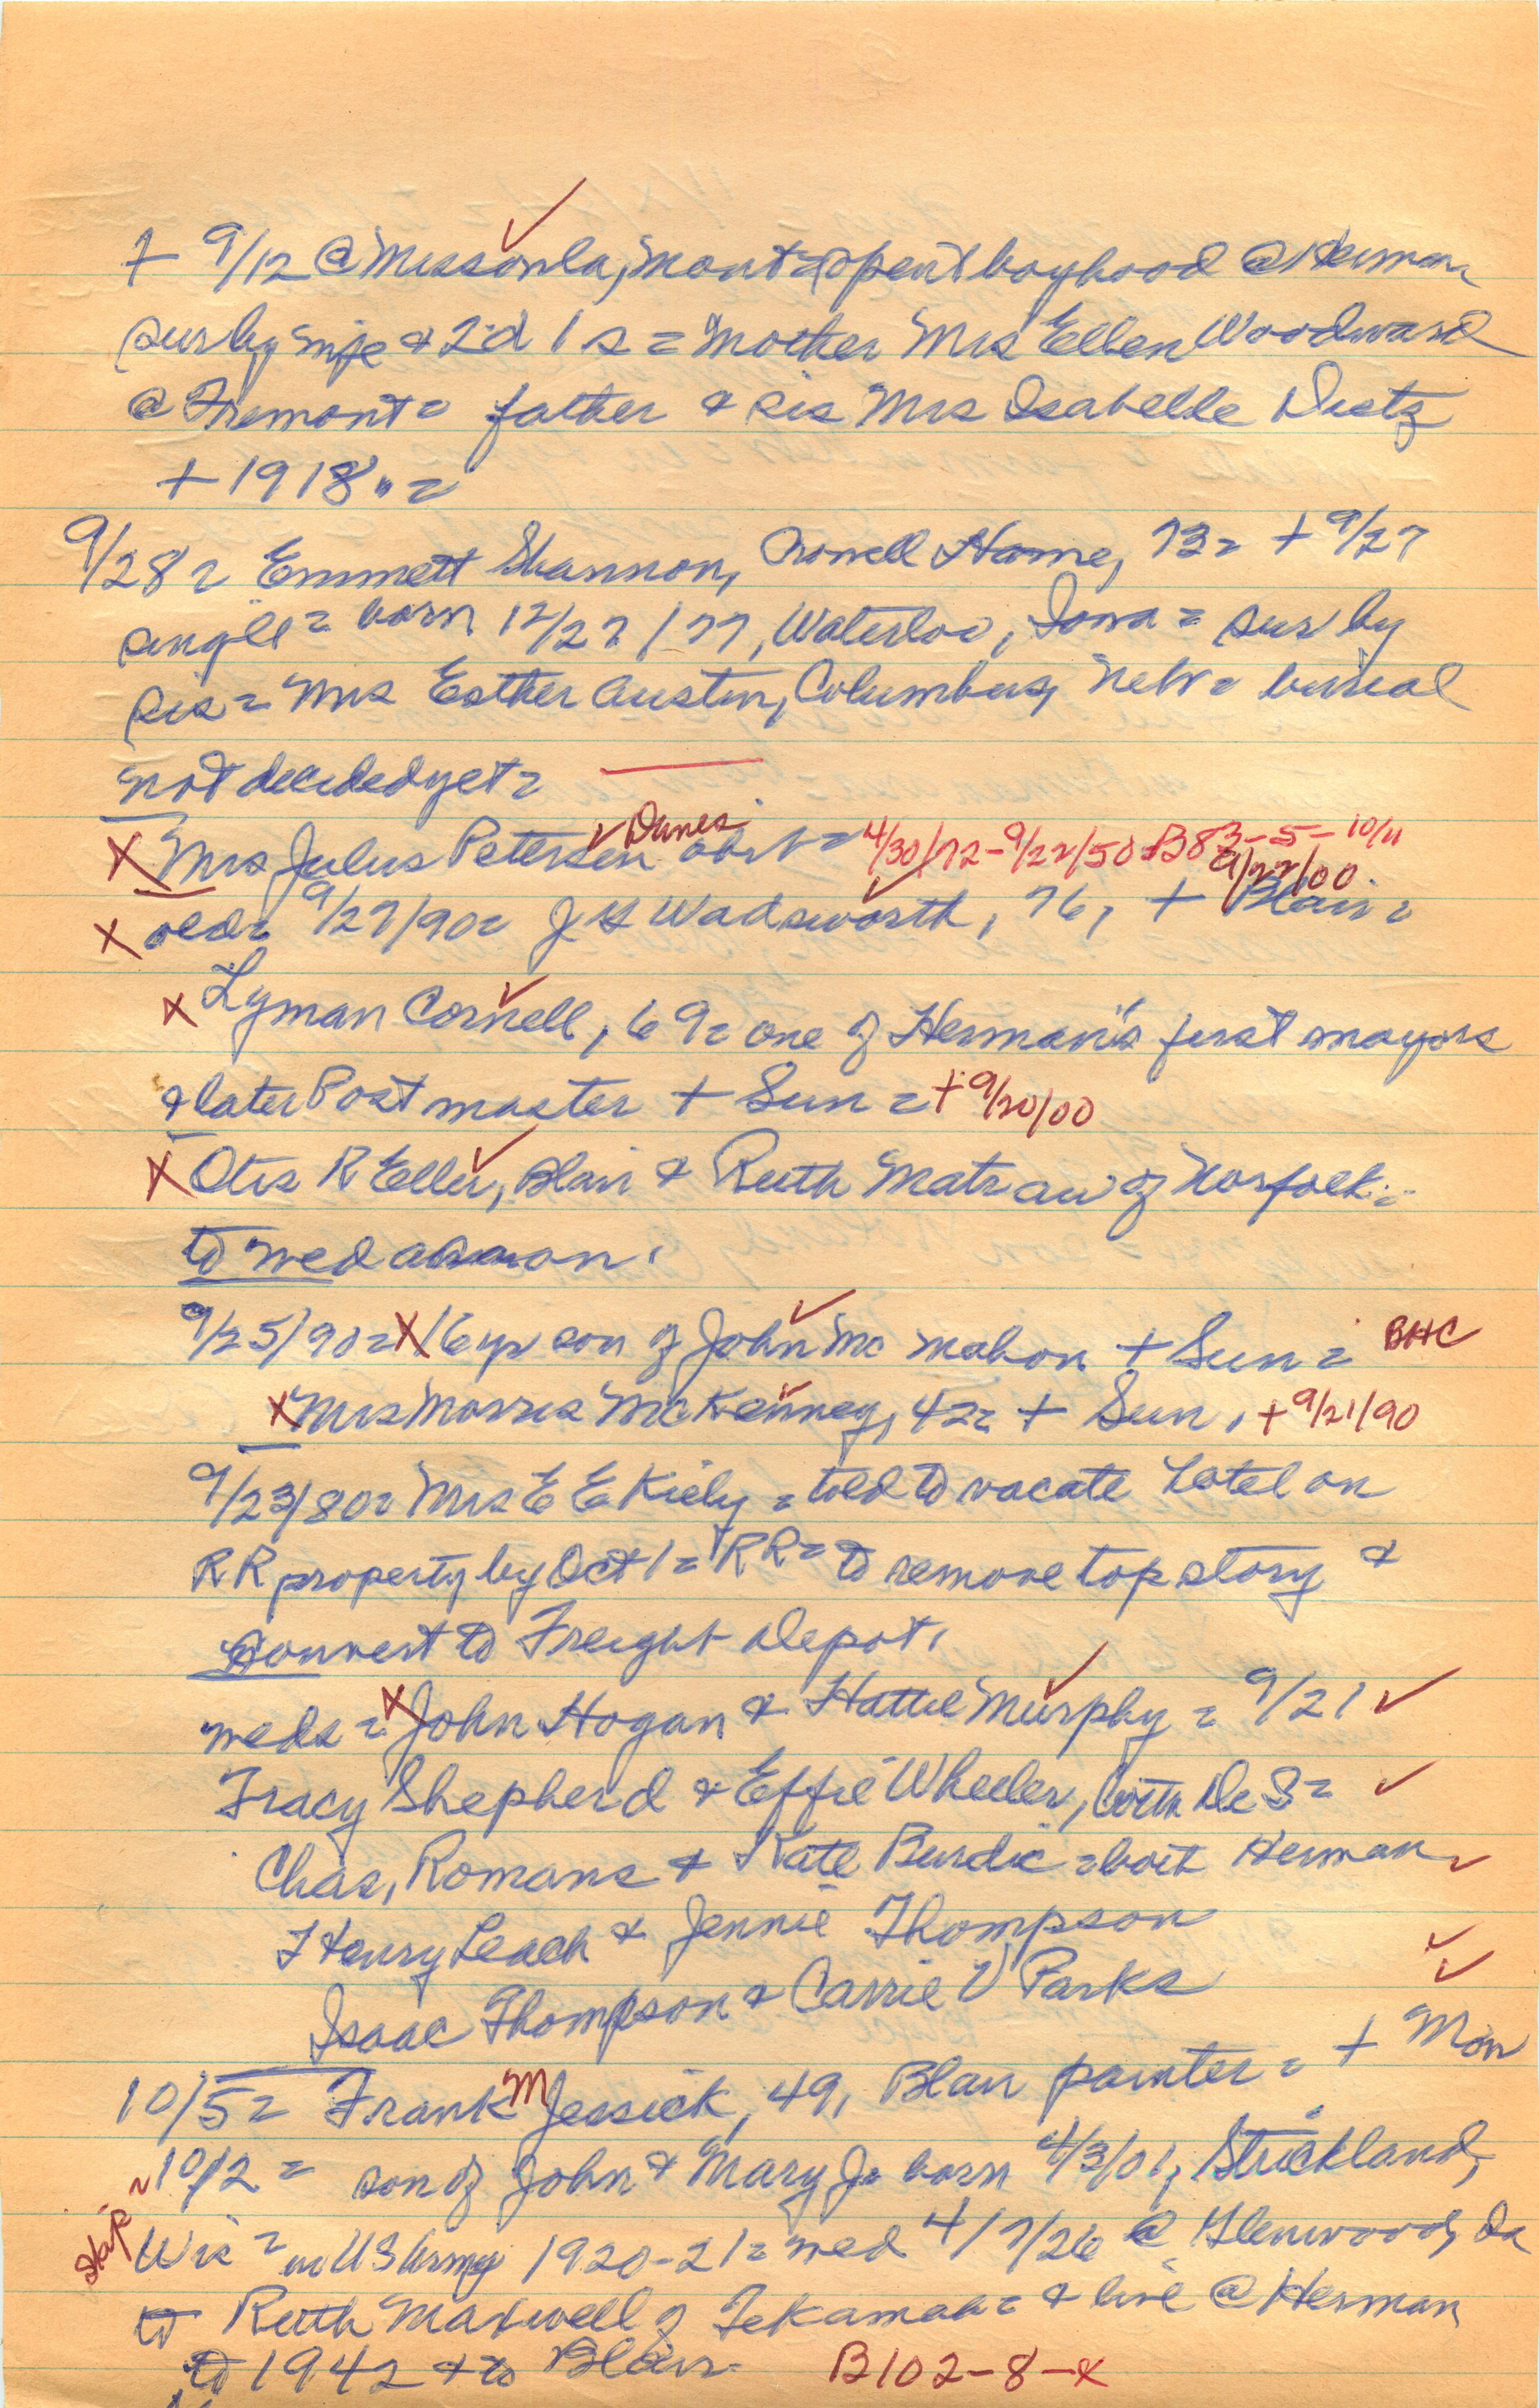 + 9/12 @ Missoula, Mont = spent boyhood @ Herman
sur by wife & 2 d 1 s = mother Mrs Ellen Woodward
@ Fremont = father & sis Mrs Isabelle Dietz
+ 1918 " =
9/28 = Emmett Shannon, Crowell Home, 73 = + 9/27
single = born 12/27/77, Waterloo, Iowa = sur by
sis = Mrs Esther Austin, Columbus, Nebr = burial
not decided yet =
X Mrs Julius Petersen ✓ Danes obit = 4/30/72 - 9/22/50 B83-5-10/11
9/22/00
X 9/27/90 = J G Wadsworth, 76, + Blair =
X Lyman Cornell, 69 = one of Herman's first mayors
& later Postmaster + Sun = + 9/20/00
X Otis R Eller, Blair & Ruth of Norfolk =
to wed
9/25/90 = X 16 yr son of John McMahon + Sun = BHC
X Mrs Morris McKenney, 42 = + Sun, + 9/21/90
9/23/80 = Mrs E E Kiely = told to vacate hotel on
RR property by Oct 1 = RR = to remove top story &
convert to Freight Depot,
weds = X John Hogan & Hattie Murphy = 9/21 ✓
Tracy Shepherd & Effie Wheeler, both De S = ✓
Chas, Romans & Kate Burdic = both Herman ✓
F Henry Leach & Jennie Thompson ✓
Isaac Thompson & Carrie V Parks ✓
10/5 = Frank M Jessick, 49, Blair painter = + Mon
10/2 = son of John & Mary J = born 4/3/01, Strickland,
Skip Wis = in US Army 1920-21 = wed 4/7/26 @ Glenwood, Ia
to Ruth Maxwell of Tekamah = & live @ Herman
to 1942 & to Blair B102-8-x